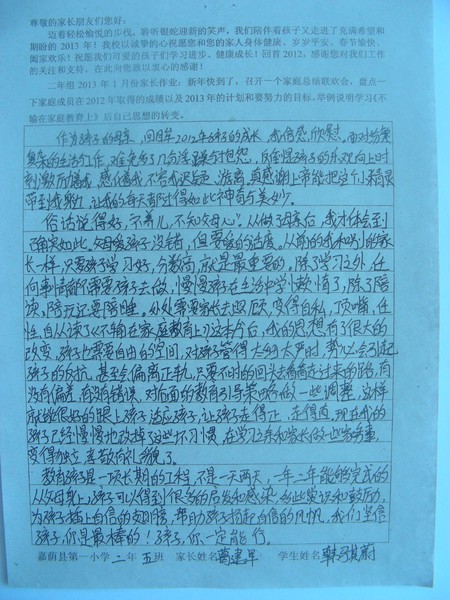 尊敬的家长朋友们您好：
迈着轻松愉悦的步伐，聆听银蛇迎新的笑声，我们陪伴着孩子又走进了充满希望和
期盼的2013年！我校以诚挚的心祝愿您和您的家人身体健康、岁岁平安、春节愉快、
阖家欢乐！祝愿我们可爱的孩子们学习进步、健康成长！回首2012，感谢您对我们工作
的关注和支持，在此向您致以衷心的感谢！
二年组2013年1月份家长作业：新年快到了，召开一个家庭总结联欢会，盘点一
下家庭成员在2012年取得的成绩以及2013年的计划和要努力的目标，举例说明学习《不
输在家庭教育上》后自己思想的转变。
作为孩子的母亲，回顾2012年孩子的成长，我倍感欣慰。面对纷繁
复杂的生活工作，难免多了几句浮躁与抱怨，
刺激所
带到我身边，让我的每天都过得如此神奇与美妙。
俗话说得好，"不养儿，不知父母心"。从做了母亲后，我才体会到
了确实如此，父母爱孩子没错，但要爱的适度，从前的我和别的家
长一样，只要孩子学习好，分数高，就是最重要的，除了学习之外，任
何事情都不需要孩子去做，慢慢孩子在生活中学会懒惰了，除了陪
读，陪玩还要陪睡。处处需要家长去照顾，变得自私，顶嘴，任
性，自从读了《不输在家庭教育上》这本书后，我的思想有了很大的
改变，孩子也需要自由的空间，对孩子管得太多太严时，势必会引起
孩子的反抗，甚至会偏离正轨，只要不时的回头看看走过来的路，有
没有偏差，有没有错误，对后面的教育引导策略做一些调整，这样
就能很好的跟上孩子，适应孩子，让孩子走得正，走得直，现在我的
孩子已经慢慢地改掉了这些坏习惯，在学习之余和家长做一些家务事，
变得独立、勇敢、有礼貌了。
教育孩子是一项长期的工程，不是一天两天，一年二年能够完成的
从父母身上，孩子可以得到很多的启发和感染，
为孩子插上自信的翅膀，帮助孩子扬起自信的风帆，我们坚信
孩子，你是最棒的！孩子，你一定能行。
嘉荫县第一小学 二年 五班 家长姓名 葛建华 学生姓名